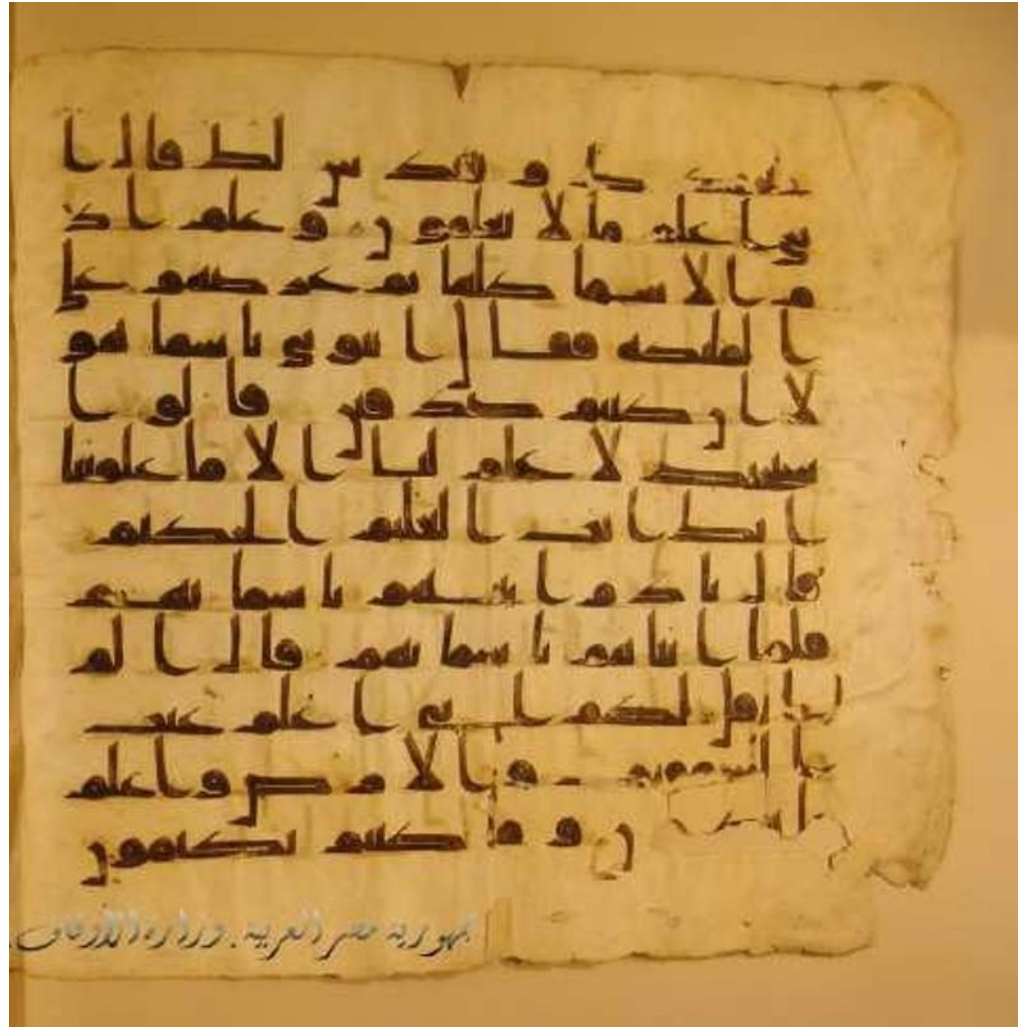 بحمدك و نقدس لك قال ا
ني اعلم ما لا تعلمون و علم اد
م ا لا سما كلها ثم عرضهم على
ا لملئكه فقال ا نبو ني با سما هو
لا ا ن كنتم صدقين قا لو ا
سبحنك لا علم لنا ا لا ما علمتنا
ا نك ا نت ا لعليم ا لحكيم
قا ل يا د م ا نبئهم با سما ئهم
فلما ا نبا هم با سما ئهم قا ل ا لم
ا قل لكم ا ني ا علم غيب
ا لسموت و ا لا رض و ا علم
ن و ما كنتم تكتمون
جمهورية مصر العربية . وزارة الأوقاف .